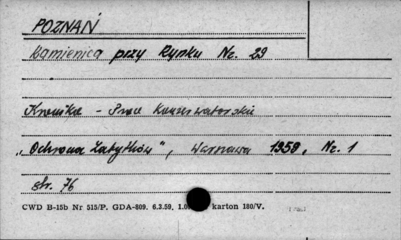 POZNAŃ
Kamienica przy Rynku Nr. 29
Kronika - Prace konserwatorskie
„Ochrona Zabytków", Warszawa 1958, Nr. 1
str. 76
CWD B-15b Nr 515/P. GDA-809. 6.3.59, karton 180/V.